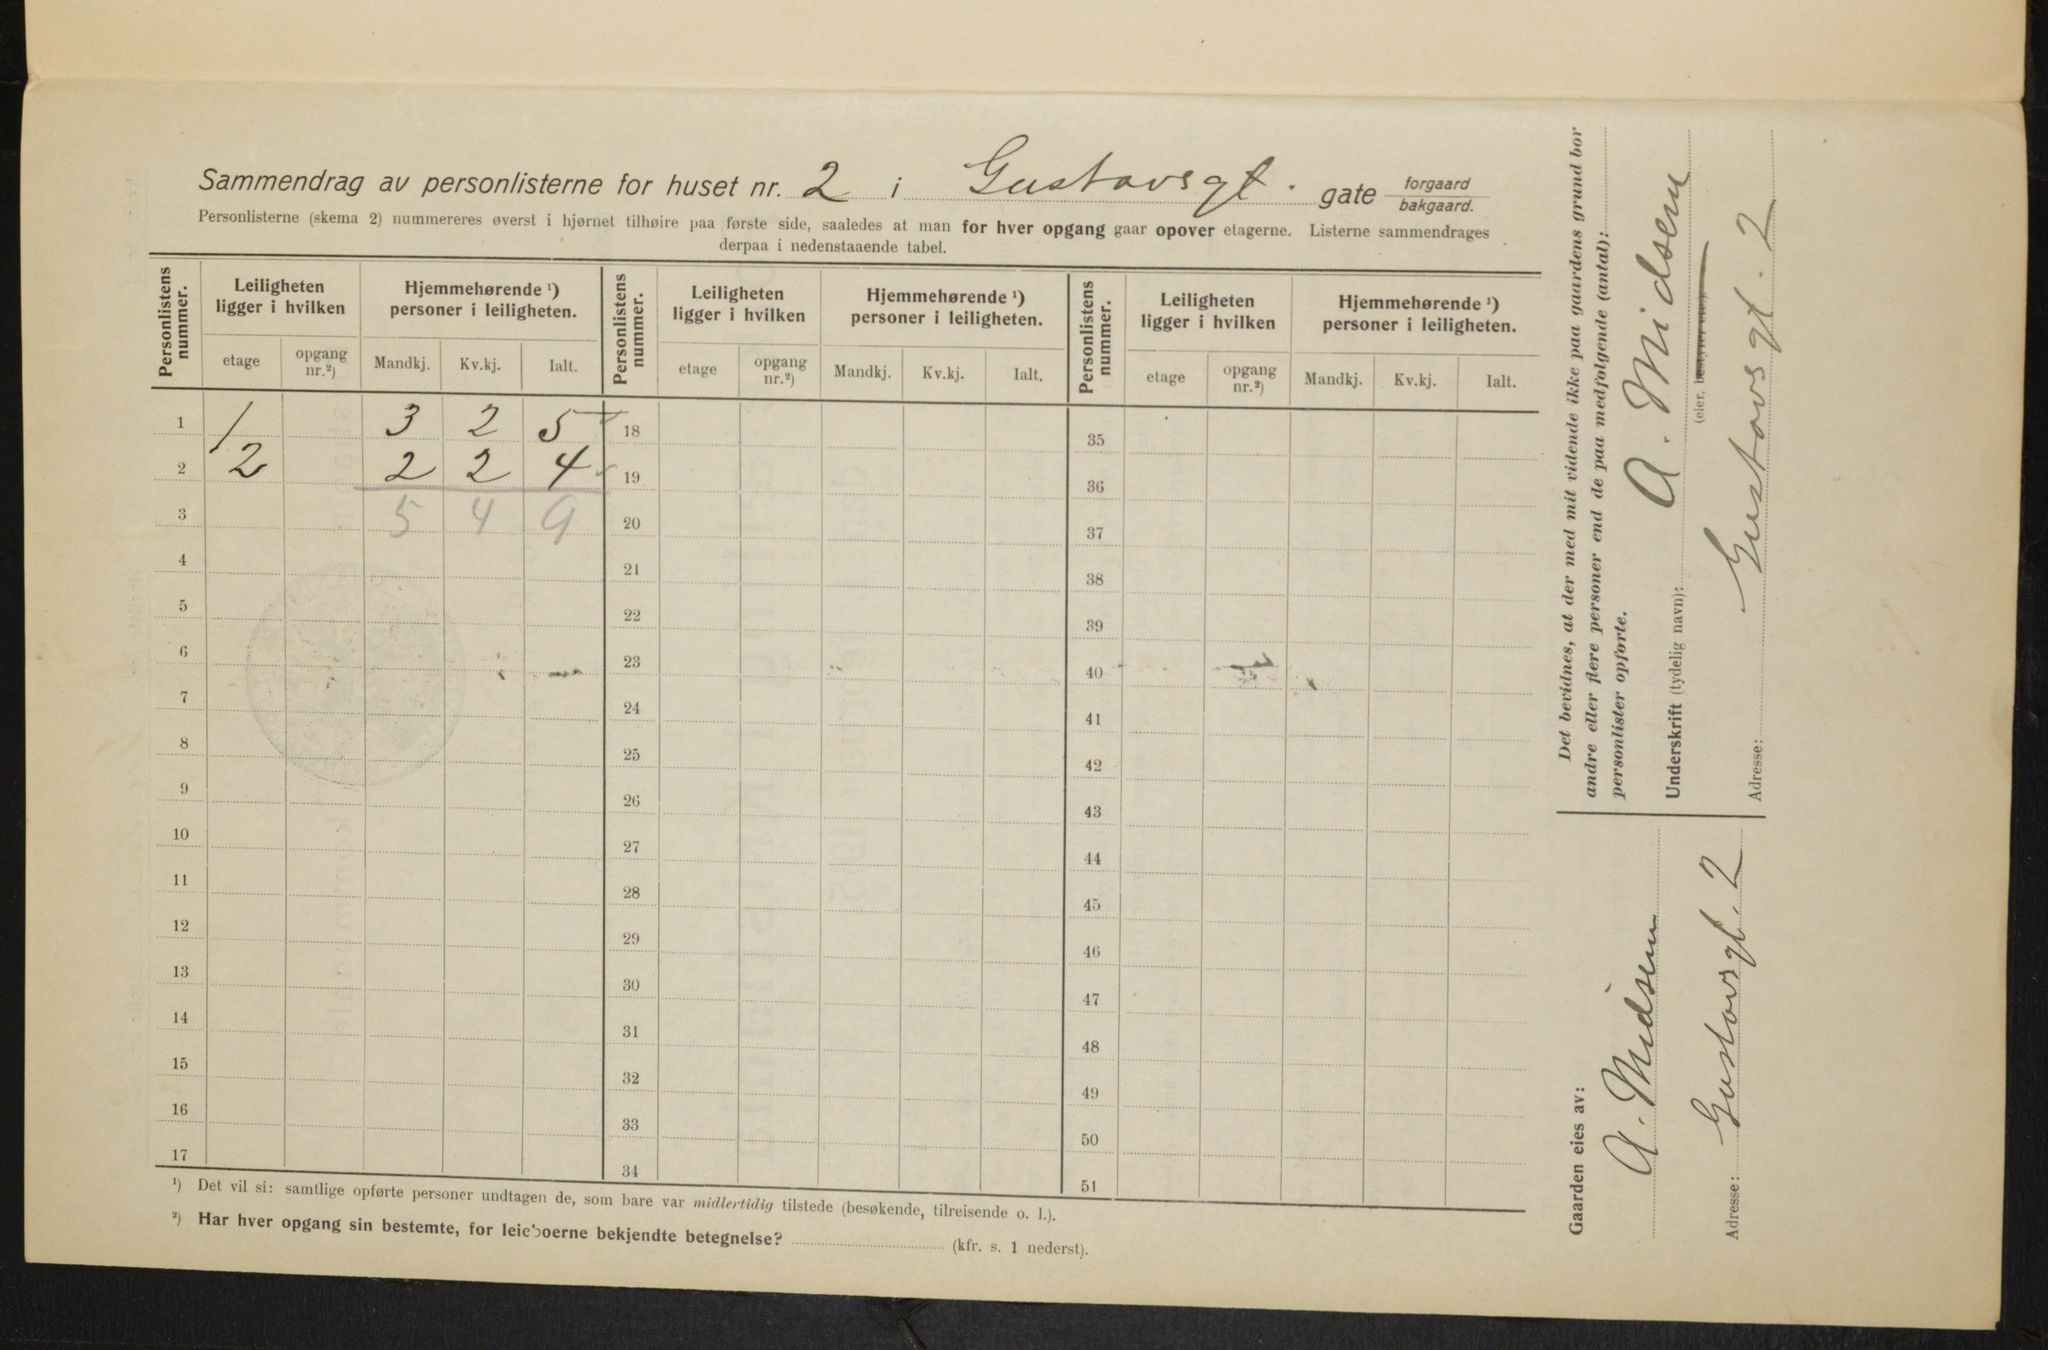 Sammendrag av personlisterne for huset nr. 2 i Gustavsgt. gate forgaard bakgaard.
Personlisterne (skema 2) nummereres øverst i hjørnet tilhøire paa første side, saaledes at man for hver opgang gaar opover etagerne. Listerne sammendrages
derpaa i nedenstaaende tabel.
Personlistens nummer. Leiligheten ligger i hvilken Hjemmehørende ¹) personer i leiligheten. Personlistens nummer. Leiligheten ligger i hvilken Hjemmehørende ¹) personer i leiligheten. Personlistens nummer. Leiligheten ligger i hvilken Hjemmehørende ¹) personer i leiligheten.
etage opgang nr.²) Mandkj. Kv.kj. Ialt. etage opgang nr.²) Mandkj. Kv.kj. Ialt. etage opgang nr.²) Mandkj. Kv.kj. Ialt.
1 1 3 2 5 18 35
2 2 2 2 4 19 36
3 5 4 9 20 37
4 21 38
5 22 39
6 23 40
7 24 41
8 25 42
9 26 43
10 27 44
11 28 45
12 29 46
13 30 47
14 31 48
15 32 49
16 33 50
17 34 51
¹) Det vil si: samtlige opførte personer undtagen de, som bare var midlertidig tilstede (besøkende, tilreisende o. l.).
²) Har hver opgang sin bestemte, for leieboerne bekjendte betegnelse? (kfr. s. 1 nederst).
Det bevidnes, at der med mit vidende ikke paa gaardens grund bor
andre eller flere personer end de paa medfølgende (antal):
personlister opførte.
Underskrift (tydelig navn): A. Midsem
(eier, bestyrer etc.)
Adresse: Gustavsgt. 2
Gaarden eies av:
A. Midsem
Adresse: Gustavsgt. 2